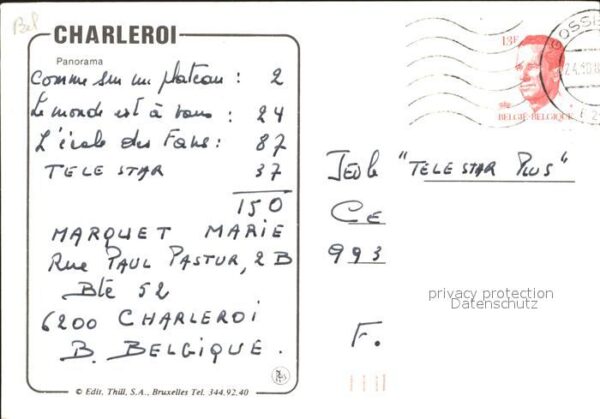 Bel
CHARLEROI
Panorama
Comme sur un plateau : 2
Le monde est à vous : 24
L'école des Fans : 87
TELE STAR 37
150
MARQUET MARIE
Rue PAUL PASTUR, 2 B
Bte 52
6200 CHARLEROI
B. BELGIQUE.
© Edit. Thill, S.A., Bruxelles Tel. 344.92.40
13F
BELGIË-BELGIQUE
GOSSE
"TELE STAR PLUS"
CE
993
F.
privacy protection
Datenschutz